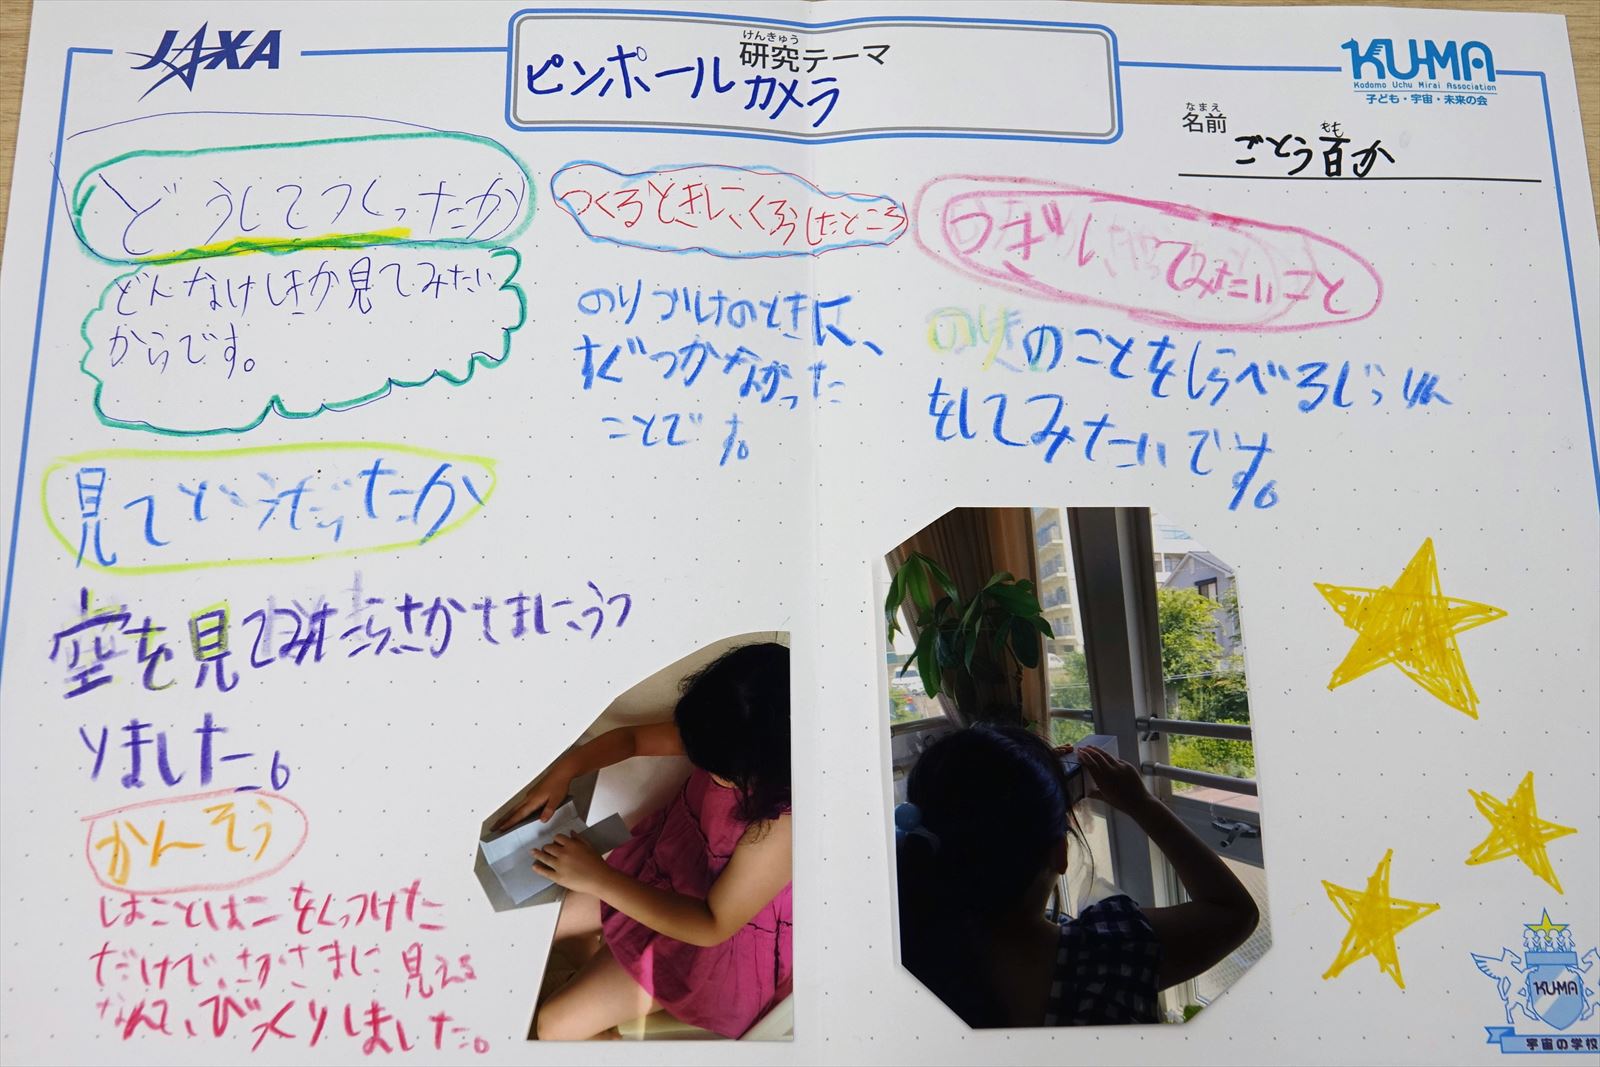 JAXA
けんきゅう
研究テーマ
ピンポールカメラ
KU-MA
Kodomo Uchu Mirai Association
子ども・宇宙・未来の会
なまえ
名前
もも
ごとう百か
どうしてつくったか
どんなけしきか見てみたい
からです。
見てどうだったか
空を見てみたらさかさまにうつ
りました。
かんそう
はことはこをくっつけた
だけで、さかさまに見える
なんて、びっくりしました。
つくるときに、くろうしたところ
のりづけのときに、
すぐつかなかった
ことです。
つぎにしてみたいこと
のことをしらべるじっけん
をしてみたいです。
KU-MA
宇宙の学校